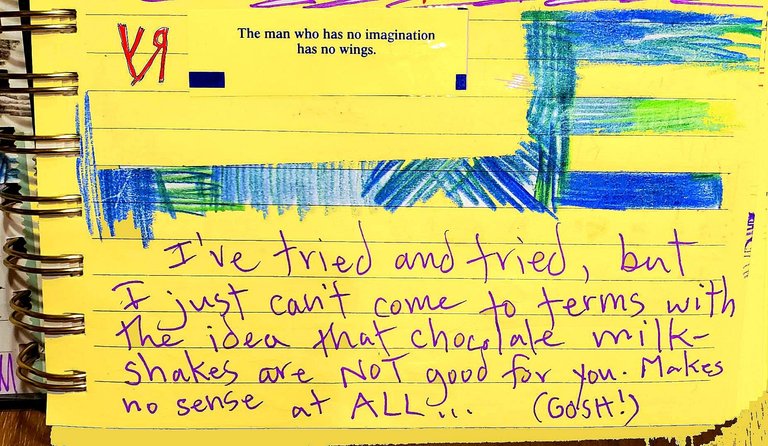 The man who has no imagination
has no wings.
I've tried and tried, but
I just can't come to terms with
the idea that chocolate milk-
shakes are NOT good for you. Makes
no sense at ALL... (GOSH!)